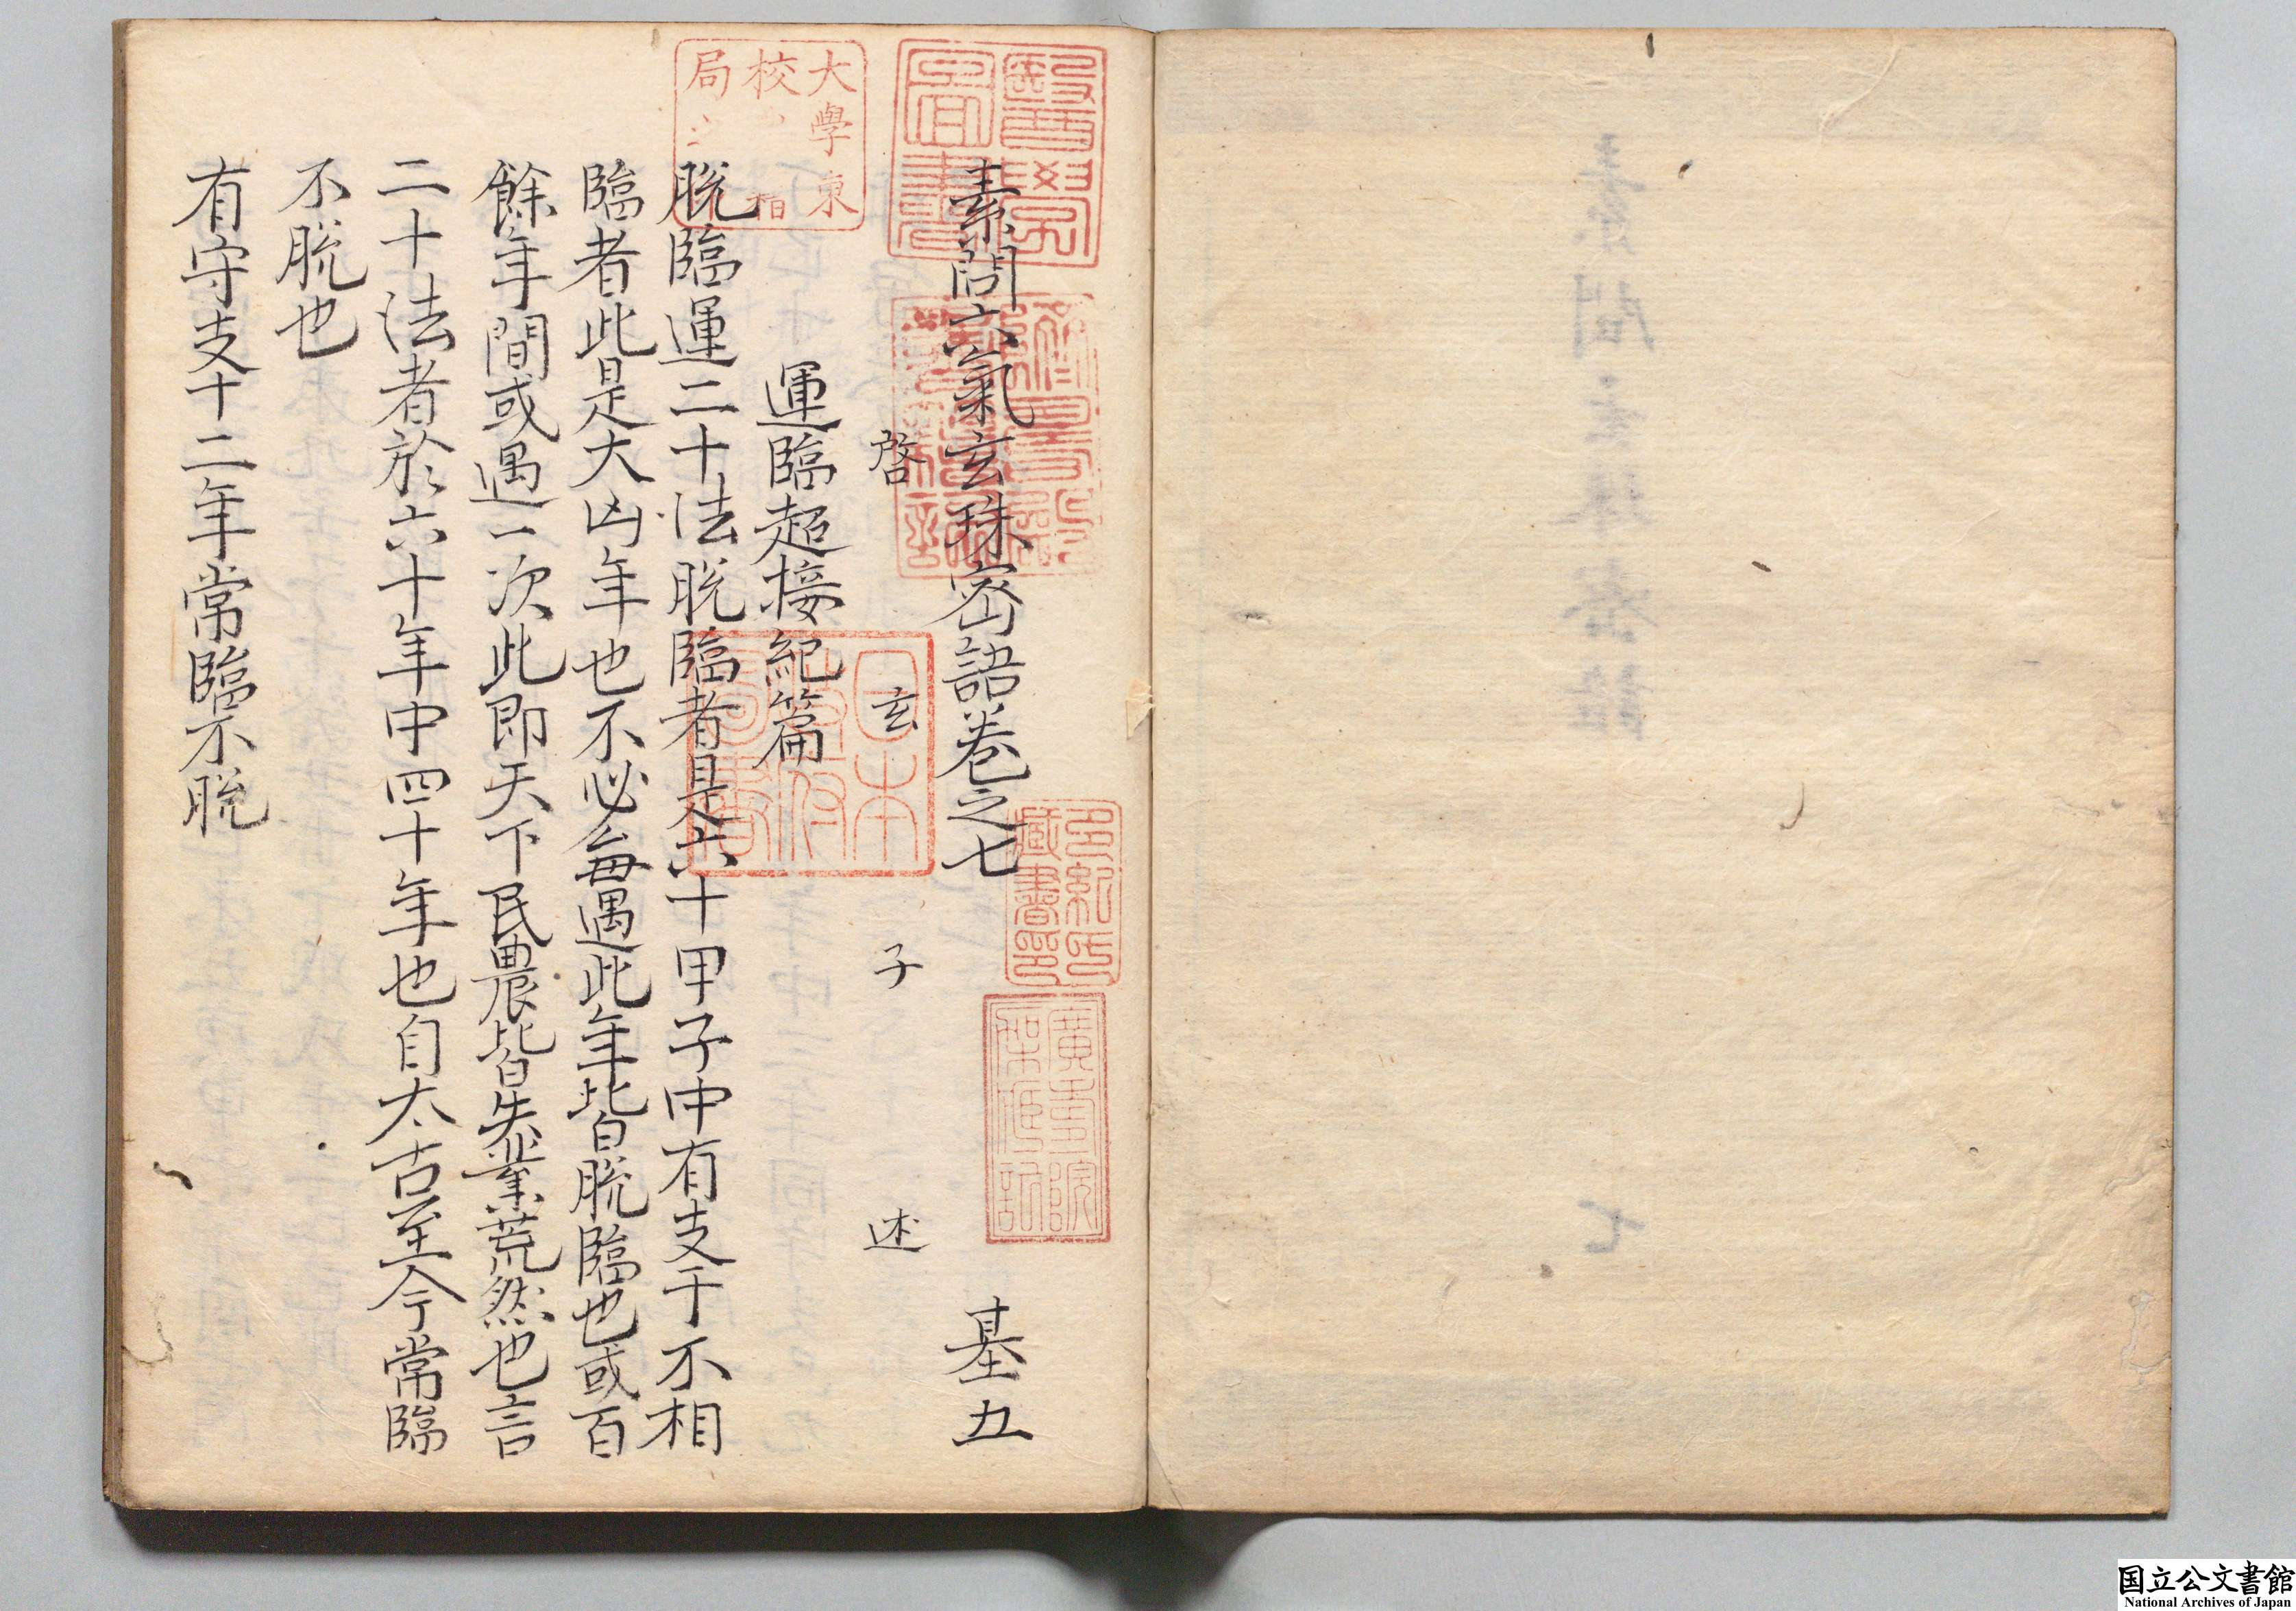 素問六氣玄珠密語卷之七 基五
啓玄子述
運臨超接紀篇
脫臨運二十法脫臨者是六十甲子中有支干不相
臨者此是大凶年也不必每遇此年皆脫臨也或百
餘年間或遇一次此即天下民農皆失業荒然也言
二十法者於六十年中四十年也自太古至今常臨
不脫也
有守支十二年常臨不脫
大學東
校
局
醫學
圖書
日本
政府
圖書
多紀氏
藏書印
廣壽院
架藏記
国立公文書館
National Archives of Japan